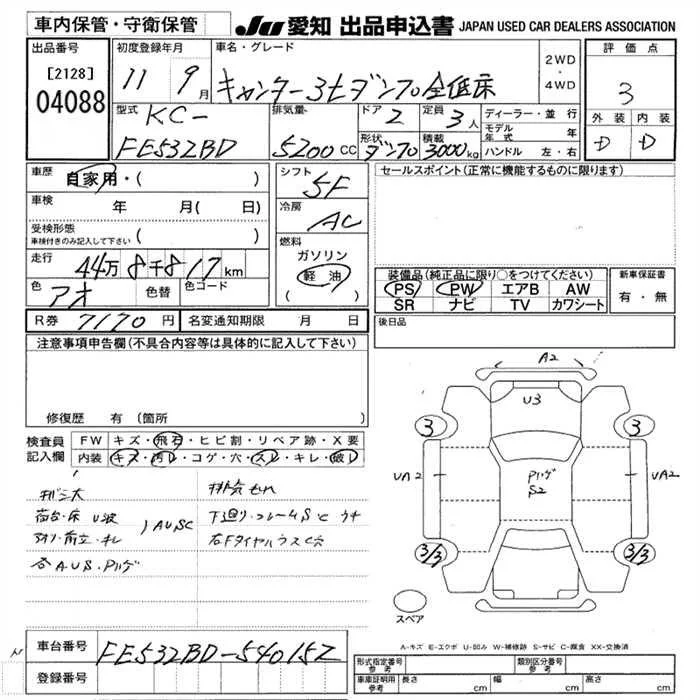 車内保管・守衛保管
JU 愛知 出品申込書 JAPAN USED CAR DEALERS ASSOCIATION
出品番号
[2128]
04088
初度登録年月
11 9月
車名・グレード
キャンター3tダンプ 全低床
2WD
・
4WD
評価点
3
外装 内装
D D
型式
KC-
FE532BD
排気量
5200 CC
ドア 2
形状 ダンプ
定員 3人
積載 3000kg
ディーラー・並行
モデル年式 年
ハンドル 左・右
車歴 自家用・( )
車検 年 月(日)
受検形態
車検付きのみ記入して下さい ( )
走行 44万8千817km
色 アオ 色替 色コード
シフト
5F
冷房
AC
燃料
ガソリン
(軽油)
( )
セールスポイント(正常に機能するものに限ります)
装備品(純正品に限り○をつけてください)
PS PW エアB AW
SR ナビ TV カワシート
新車保証書
有・無
R券 7170円 名変通知期限 月 日
後日品
注意事項申告欄(不具合内容等は具体的に記入して下さい)
修復歴 有(箇所 )
検査員
記入欄
FW キズ・飛石・ヒビ割・リペア跡・X要
内装 キズ・汚レ・コゲ・穴・スレ・キレ・破レ
荷台・床 U波
AUSC
下廻リ・フレームSC
各AUS・Pハゲ
A2
U3
3 3
UA2 UA2
Pハゲ
S2
3/3 3/3
スペア
A-キズ E-エクボ U-凹み W-補修跡 S-サビ C-腐食 XX-交換済
車台番号 FE532BD-540152
登録番号
形式指定番号
参考
類別区分番号
参考
車庫証明用
参考
長さ cm 幅 cm 高さ cm